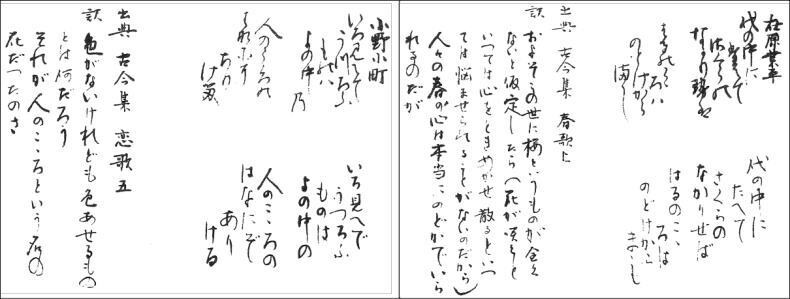 在原業平
代の中に
堂えて
なかり勢は
ろハ
のとけから
満し
代の中に
たへて
さくらの
なかり世ば
はるのこゝ
ろは
のどけから
まし
出典 古今集 春歌上
訳 およそこの世に桜というものが全く
ないと仮定したら(花が咲くと
いつては心をときめかせ散るといつ
ては悩ませられることがないのだから)
人々の春の心は本当にのどかでいら
れるのだが
小野小町
いろ見えて
うつろふ
ものハ
よの中 乃
人のこゝろの
あり
ける
いろ見へで
うつろふ
ものは
よの中の
人のこころの
はなにぞ
あり
ける
出典 古今集 恋歌五
訳 色がないけれども色あせるもの
とは何だろう
それが人のこころという名の
花だったのさ